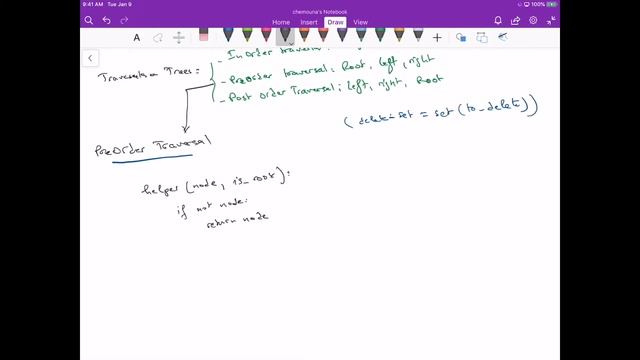 9:41 AM Tue Jan 9
100%
chemouna's Notebook
Home Insert Draw View
A
- In order traversal:
Traversal on Trees: - PreOrder traversal: Root, left, right
- Post order Traversal: left, right, Root
(delete_set = set(to_delete))
PreOrder Traversal
helper(node, is_root):
if not node:
return node